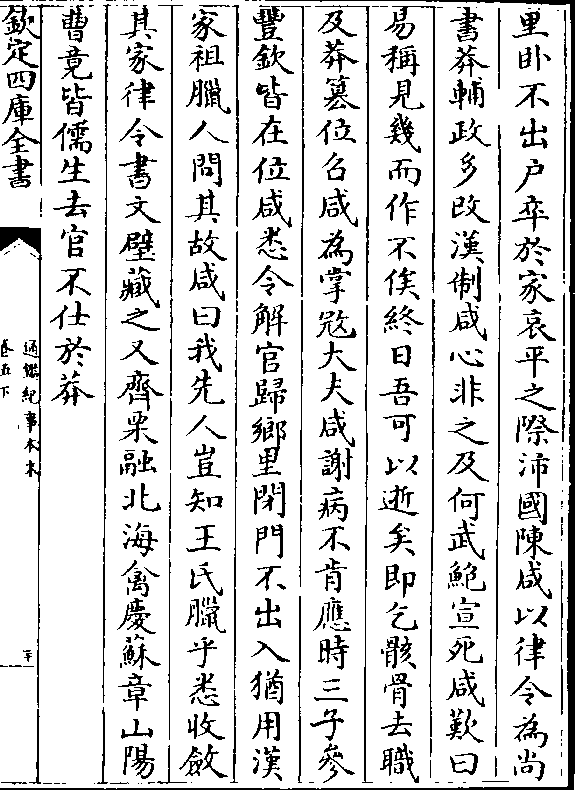 里卧不出户卒於家哀平之際沛國陳咸以律令為尚
書莽輔政多改漢制咸心非之及何武鮑宣死咸歎曰
易稱見幾而作不俟終日吾可以逝矣即乞骸骨去職
及莽篡位召咸為掌寇大夫咸謝病不肯應時三子參
豐欽皆在位咸悉令解官歸鄉里閉門不出入猶用漢
家祖臘人問其故咸曰我先人豈知王氏臘乎悉收斂
其家律令書文壁藏之又齊栗融北海禽慶蘇章山陽
曹竟皆儒生去官不仕於莽
欽定四庫全書
通鑑紀事本末
卷五下